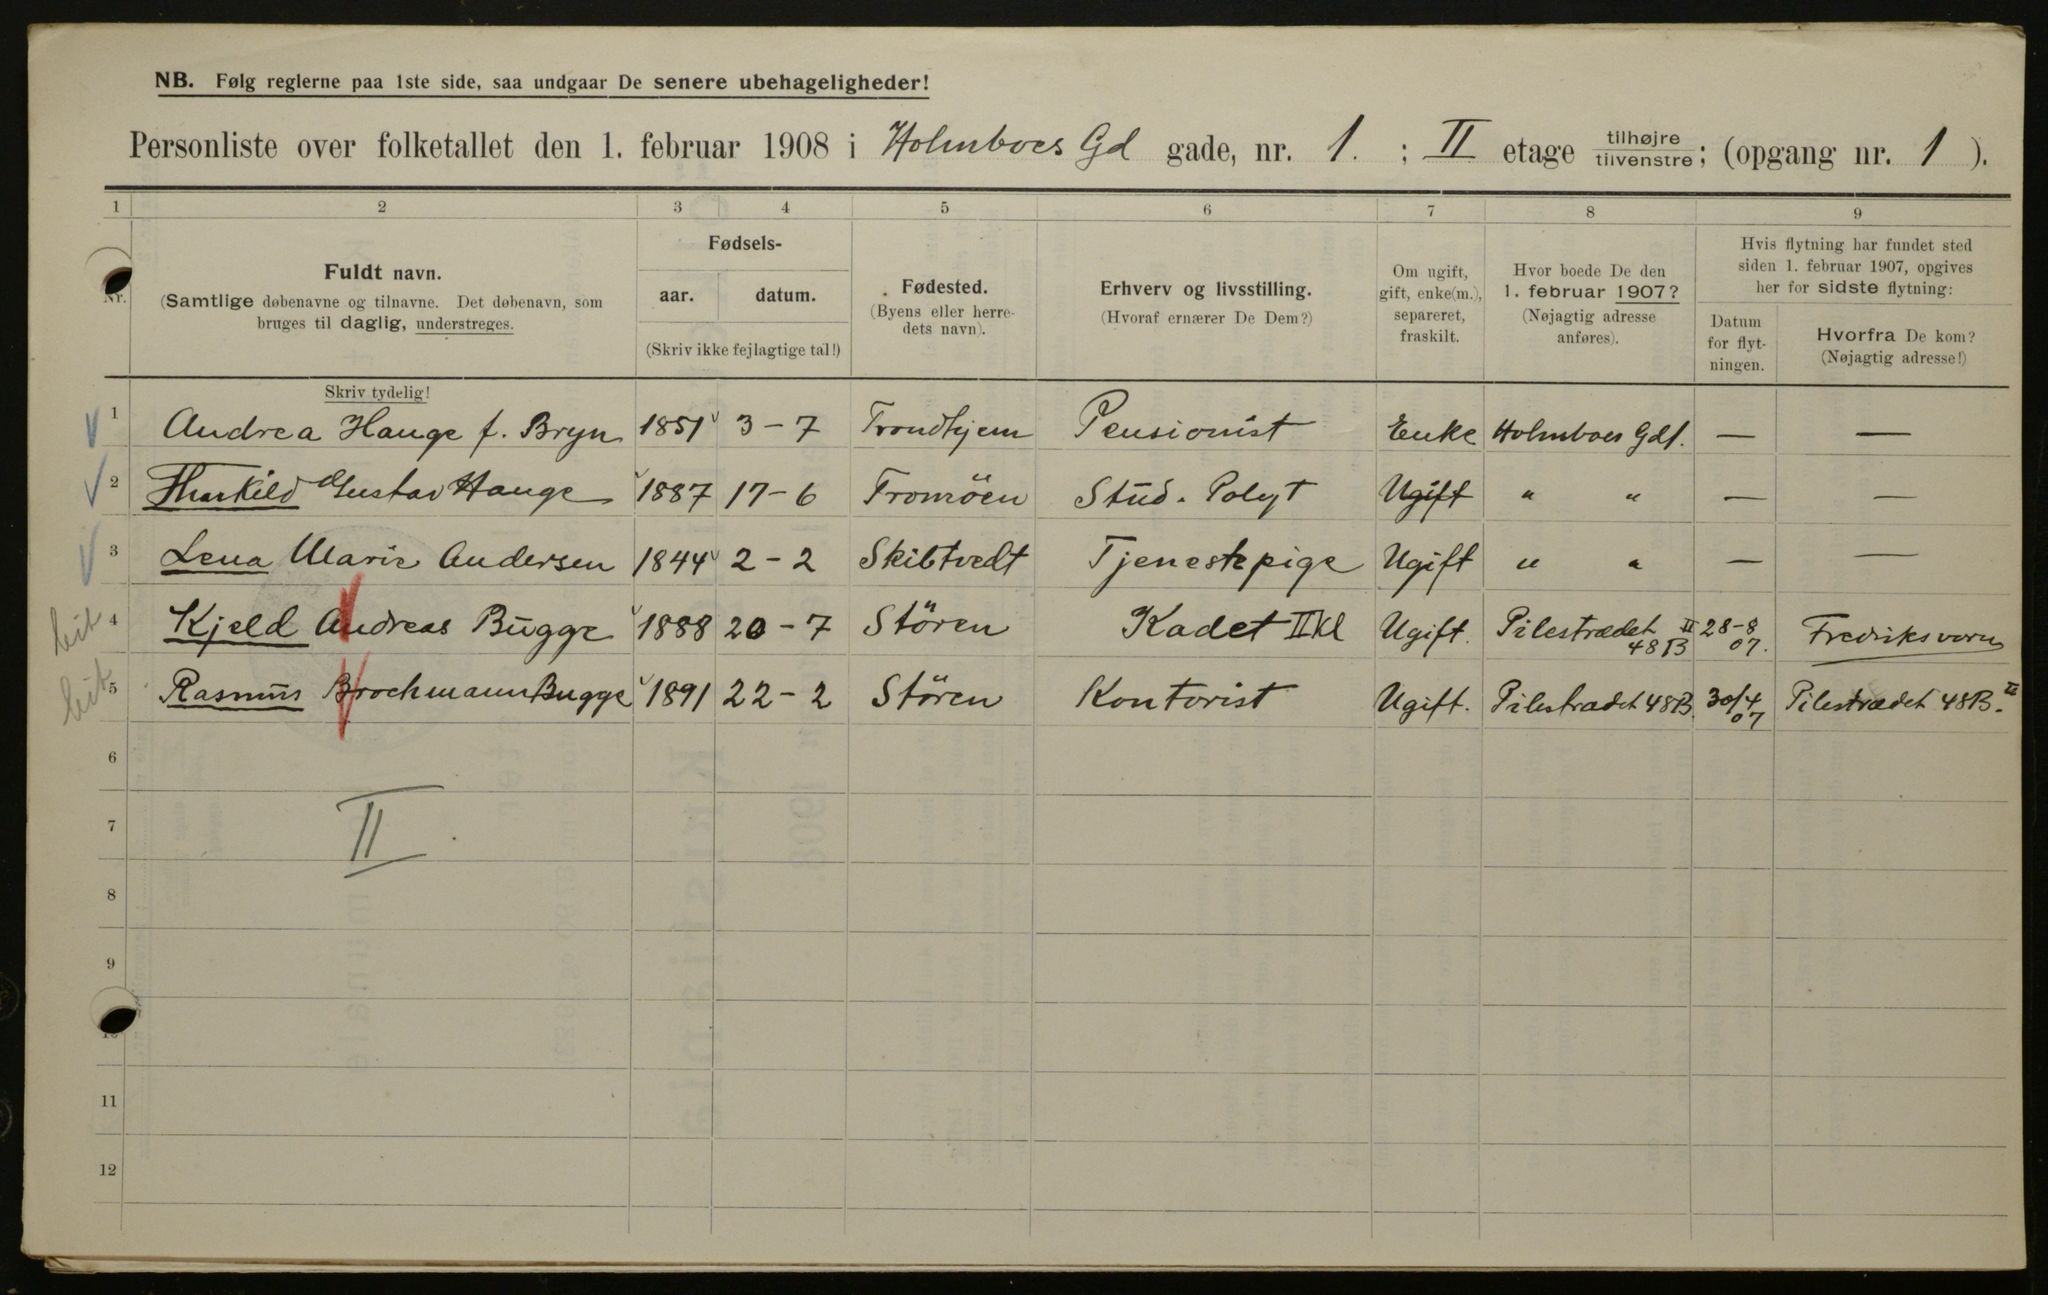 NB. Følg reglerne paa 1ste side, saa undgaar De senere ubehageligheder!
Personliste over folketallet den 1. februar 1908 i Holmboes Gd gade, nr. 1. ; II etage tilhøjre tilvenstre; (opgang nr. 1 ).
1 2 3 4 5 6 7 8 9
Nr.
Fuldt navn.
(Samtlige døbenavne og tilnavne. Det døbenavn, som
bruges til daglig, understreges.
Fødsels-
aar. datum.
(Skriv ikke fejlagtige tal!)
Fødested.
(Byens eller herre-
dets navn).
Erhverv og livsstilling.
(Hvoraf ernærer De Dem?)
Om ugift,
gift, enke(m.),
separeret,
fraskilt.
Hvor boede De den
1. februar 1907?
(Nøjagtig adresse
anføres).
Hvis flytning har fundet sted
siden 1. februar 1907, opgives
her for sidste flytning:
Datum
for flyt-
ningen.
Hvorfra De kom?
(Nøjagtig adresse!)
Skriv tydelig!
1 Andrea Hauge f. Bryn 1851 3-7 Trondhjem Pensionist Enke Holmboes Gdf. — —
2 Thorkild Gustav Hauge 1887 17-6 Tromöen Stud. Polyt Ugift " " — —
3 Lena Marie Andersen 1844 2-2 Skibtvedt Tjenestepige Ugift " " — —
4 Kjeld Andreas Bugge 1888 20-7 Stören Kadet II Kl Ugift. Pilestrædet 48B II 28-8 07. Fredriksværn
5 Rasmus Brochmann Bugge 1891 22-2 Stören Kontorist Ugift. Pilestrædet 48B. 30/4 07 Pilestrædet 48B. II
6
7 II.
8
9
10
11
12